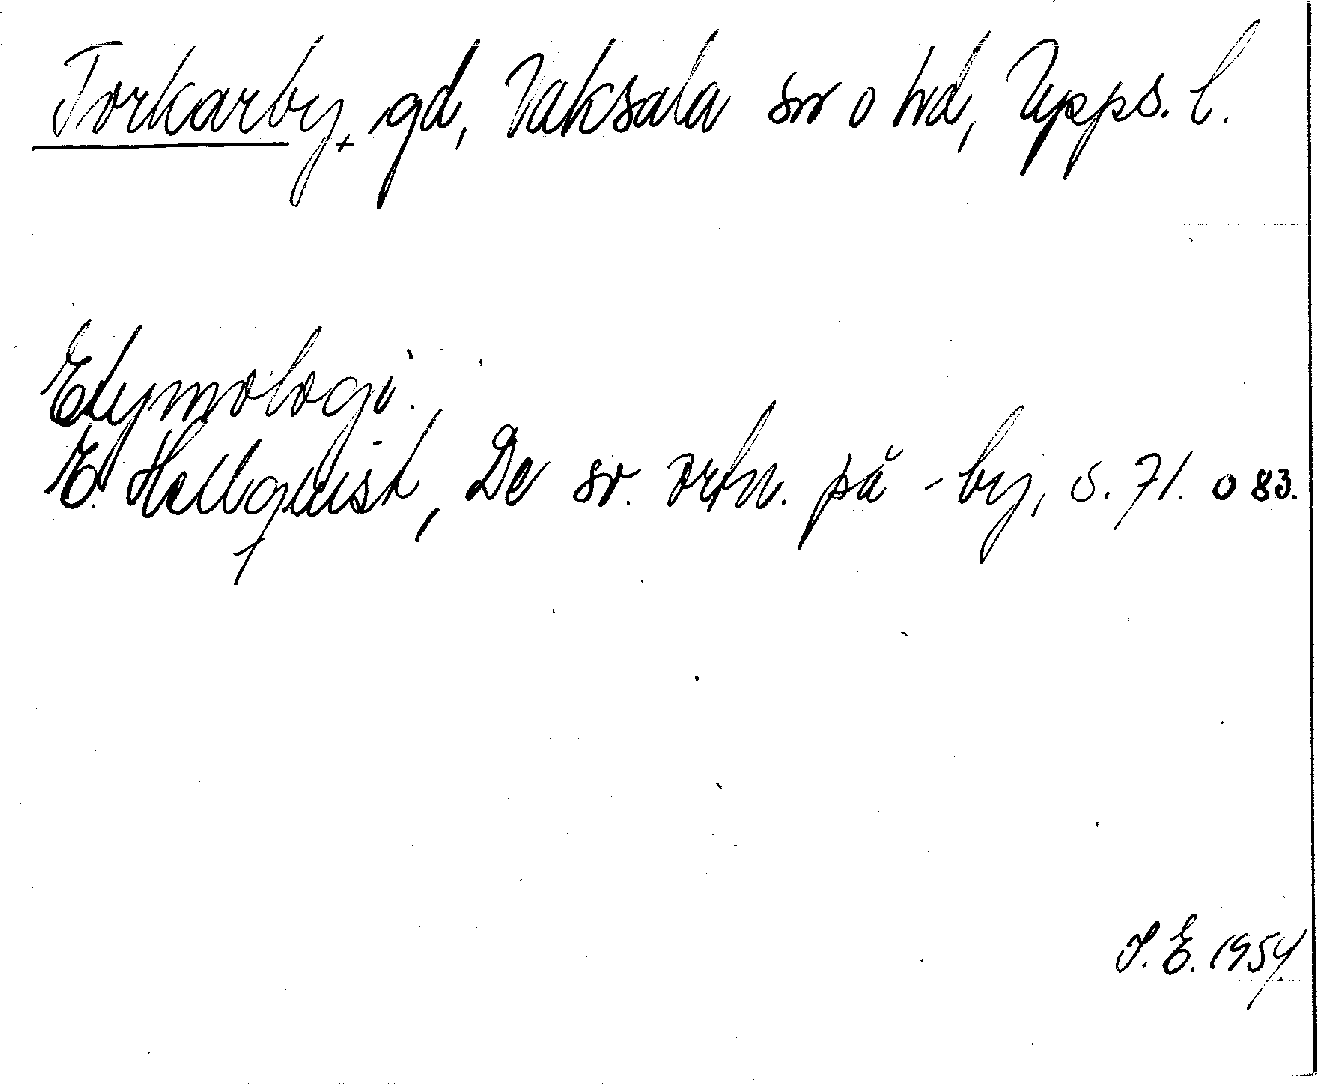 Torkarby, gd, Vaksala sn o hd, Upps. l.
Etymologi.
E. Hellquist, De sv. ortn. på -by, s. 71. o 83.
S. E. 1954